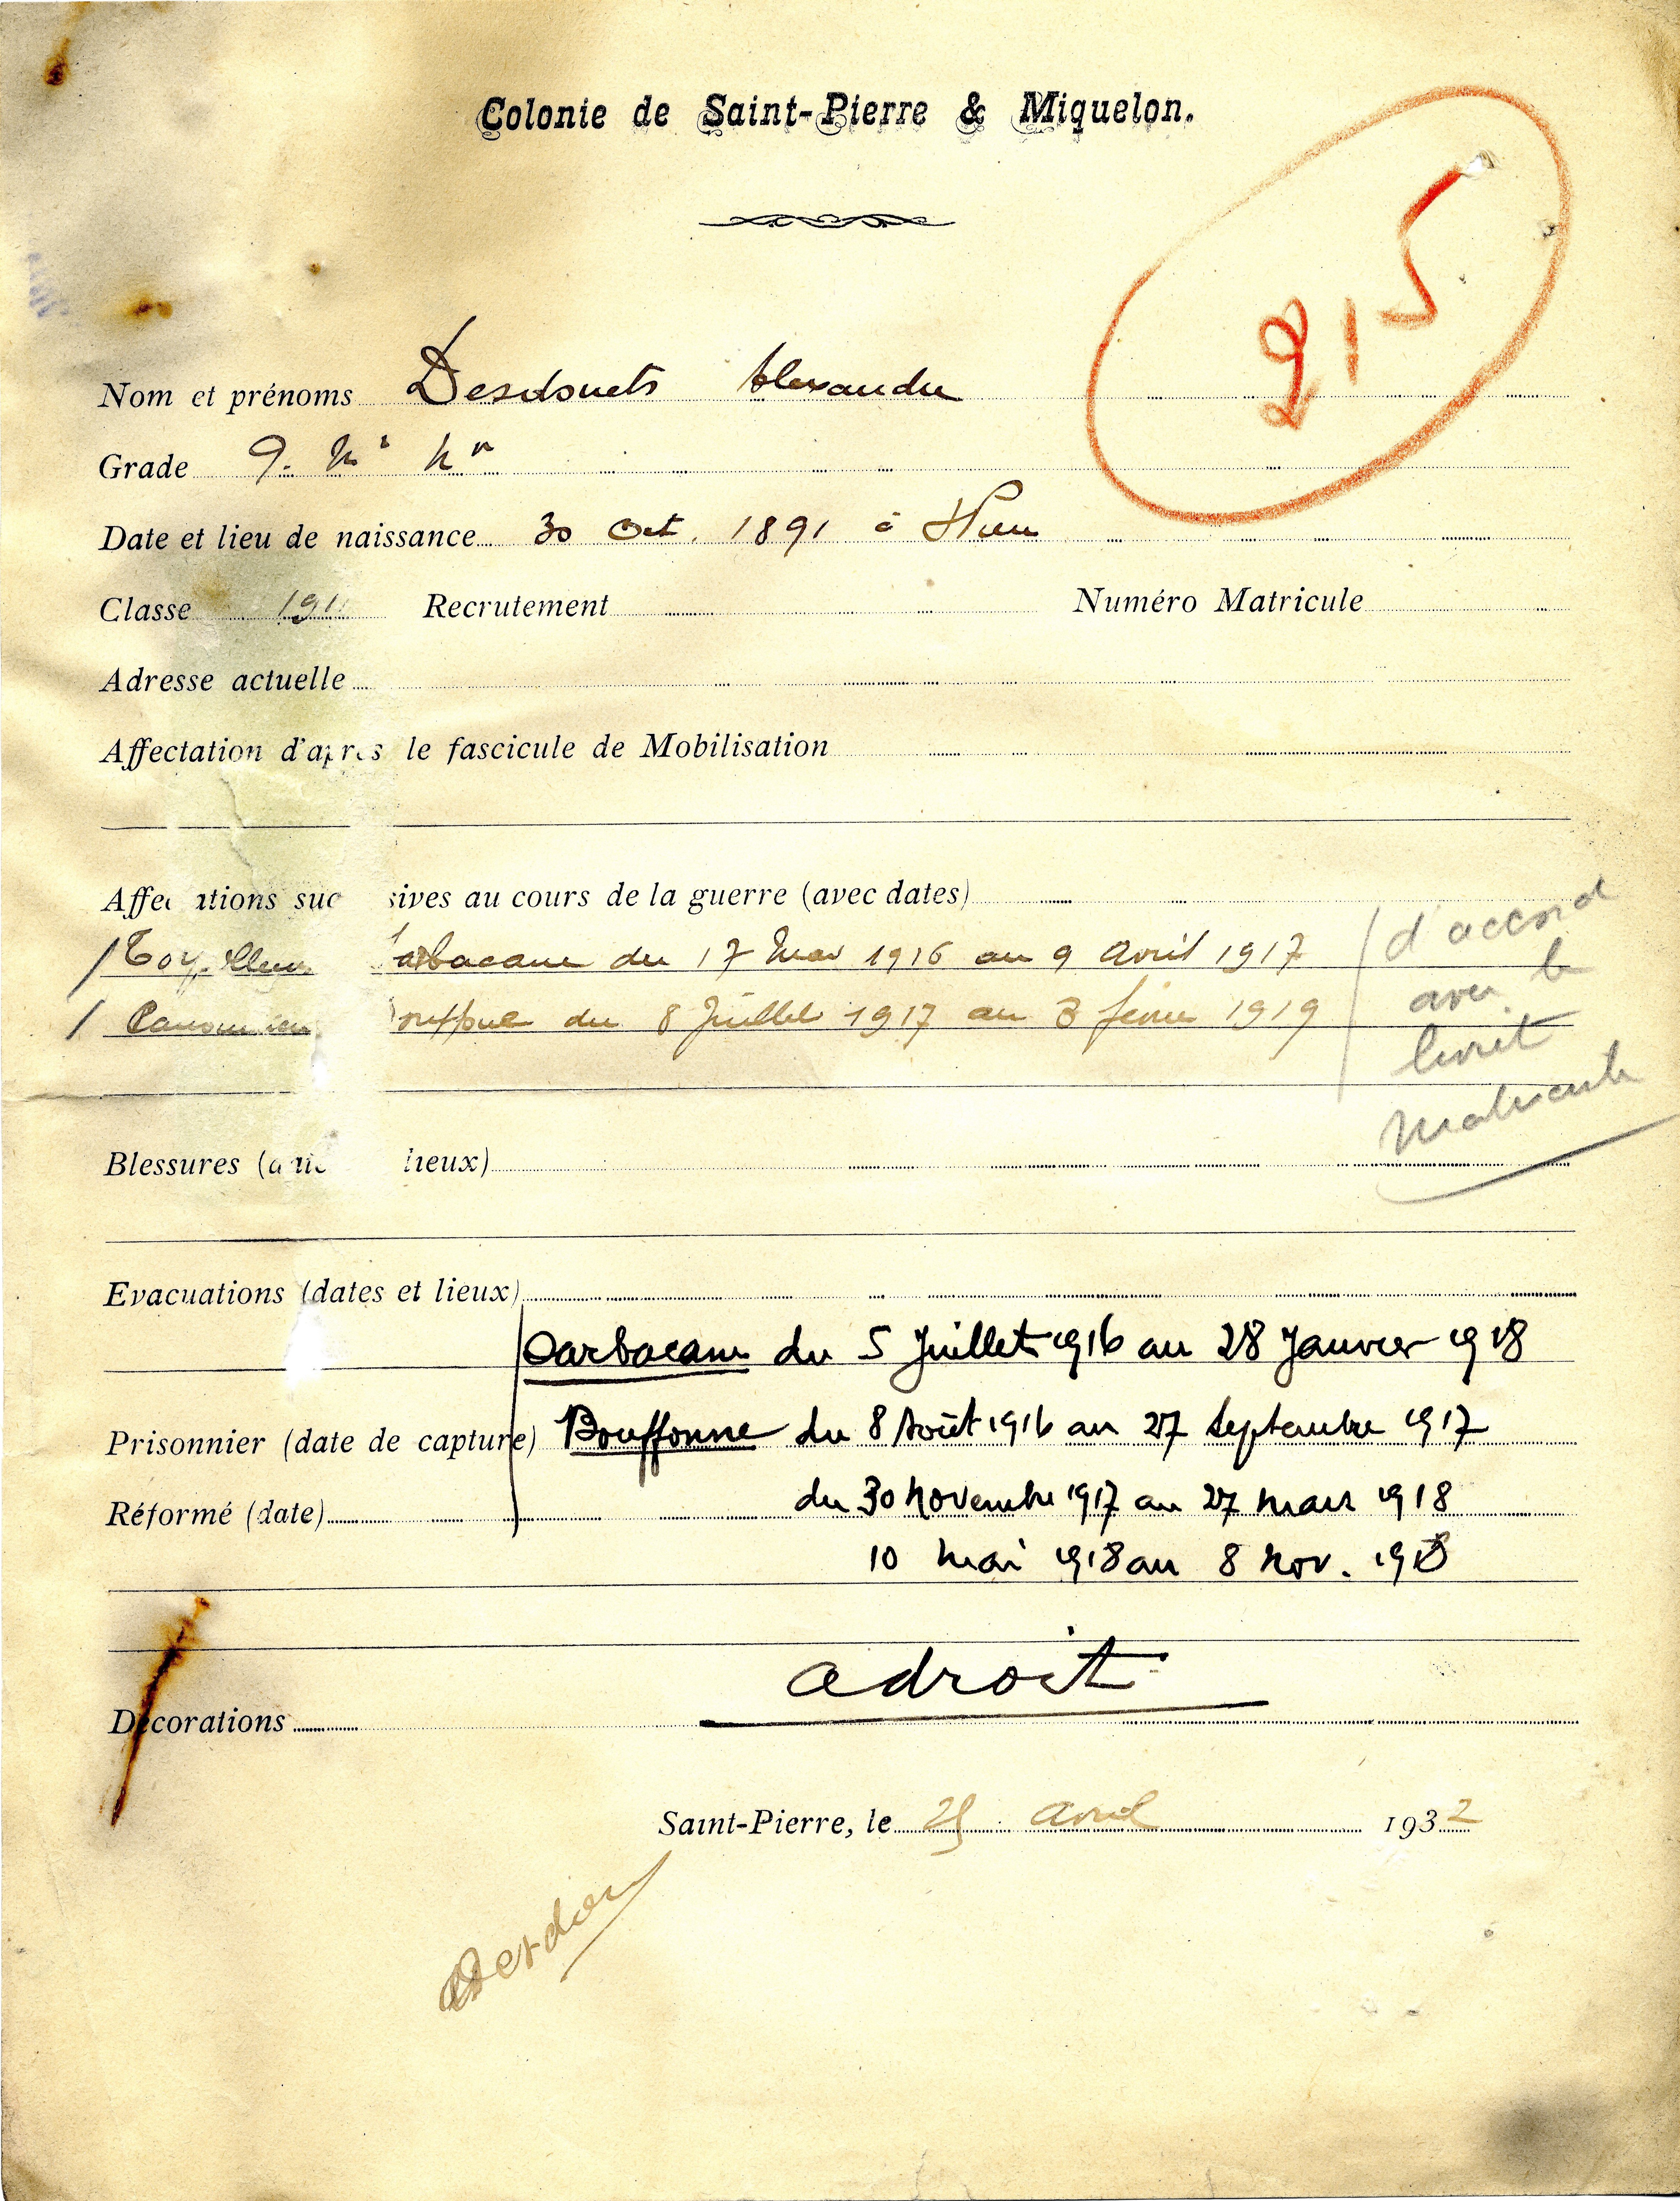 Colonie de Saint-Pierre & Miquelon.
215
Nom et prénoms Desdouets Alexandre
Grade
Date et lieu de naissance 30 Oct. 1891 à
Classe 1911 Recrutement Numéro Matricule
Adresse actuelle
Affectation d'après le fascicule de Mobilisation
Affec ations suc sives au cours de la guerre (avec dates)
arbacane du 17 Mai 1916 au 9 Avril 1917
Canonnier ouffone du 8 Juillet 1917 au 3 février 1919
d'accord
avec le
livret
Matricule
Blessures ( lieux)
Evacuations (dates et lieux)
Sarbacane du 5 Juillet 1916 au 28 Janvier 1918
Prisonnier (date de capture) Bouffonne du 8 Août 1916 au 27 Septembre 1917
Réformé (date) du 30 Novembre 1917 au 27 Mars 1918
10 Mai 1918 au 8 Nov. 1918
a droit
Décorations
Saint-Pierre, le 25 Avril 1932